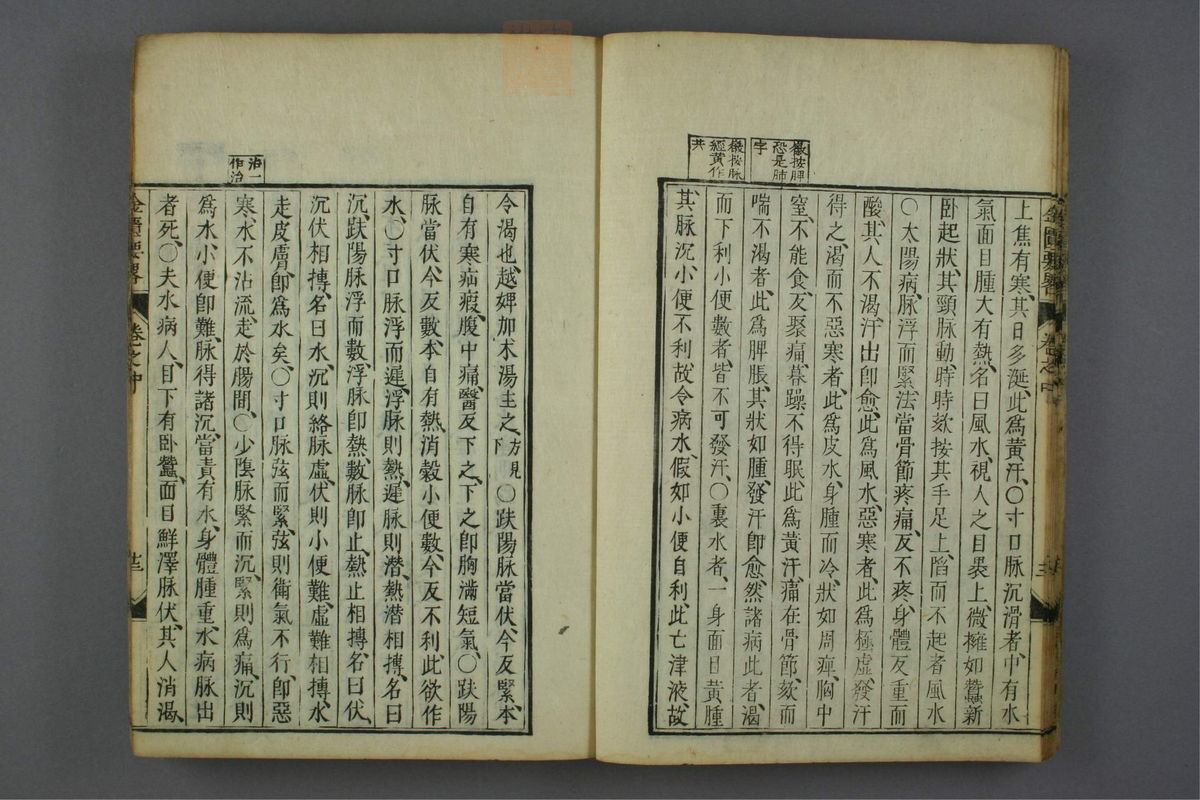 金匱要畧 卷之中
嚴按脾
恐是肺
字
嚴按脉
經黃作
共
上焦有寒、其口多涎、此爲黃汗、〇寸口脉沉滑者、中有水
氣、面目腫大、有熱、名曰風水、視人之目裹上、微擁如蠶新
卧起狀、其頸脉動、時時欬、按其手足上、陷而不起者風水
〇太陽病、脉浮而緊、法當骨節疼痛、反不疼、身體反重而
酸、其人不渴、汗出卽愈、此爲風水、惡寒者、此爲極虛、發汗
得之、渴而不惡寒者、此爲皮水、身腫而冷、狀如周痺、胸中
窒、不能食、反聚痛、暮躁不得眠、此爲黃汗、痛在骨節、欬而
喘不渴者、此爲脾脹、其狀如腫、發汗卽愈、然諸病此者、渴
而下利、小便數者、皆不可發汗、〇裏水者、一身面目黃腫
其脉沉、小便不利、故令病水、假如小便自利、此亡津液、故
令渴也、越婢加术湯主之、方見下〇趺陽脉當伏、今反緊、本
自有寒疝瘕、腹中痛、醫反下之、下之卽胸滿短氣、〇趺陽
脉當伏、今反數、本自有熱、消穀小便數、今反不利、此欲作
水、〇寸口脉浮而遲、浮脉則熱、遲脉則潜、熱潜相搏、名曰
沉、趺陽脉浮而數、浮脉卽熱、數脉卽止、熱止相搏、名曰伏、
沉伏相摶、名曰水、沉則絡脉虛、伏則小便難、虛難相摶、水
走皮膚、卽爲水矣、〇寸口脉弦而緊、弦則衛氣不行、卽惡
寒、水不沾流、走於腸間、〇少陰脉緊而沉、緊則爲痛、沉則
爲水、小便卽難、脉得諸沉、當責有水、身體腫重、水病脉出
者死、〇夫水病人、目下有卧蠶、面目鮮澤、脉伏、其人消渴、
沾一
作治
金匱要畧 卷之中 十三